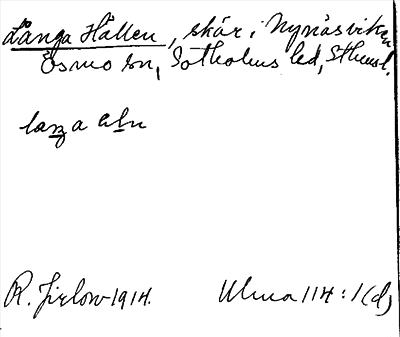 Långa Hållen, skär i Nynäsviken
Ösmo sn, Sotholms hd, Sthmsl.
R. Jirlow 1914. Ulma 114:1(d)